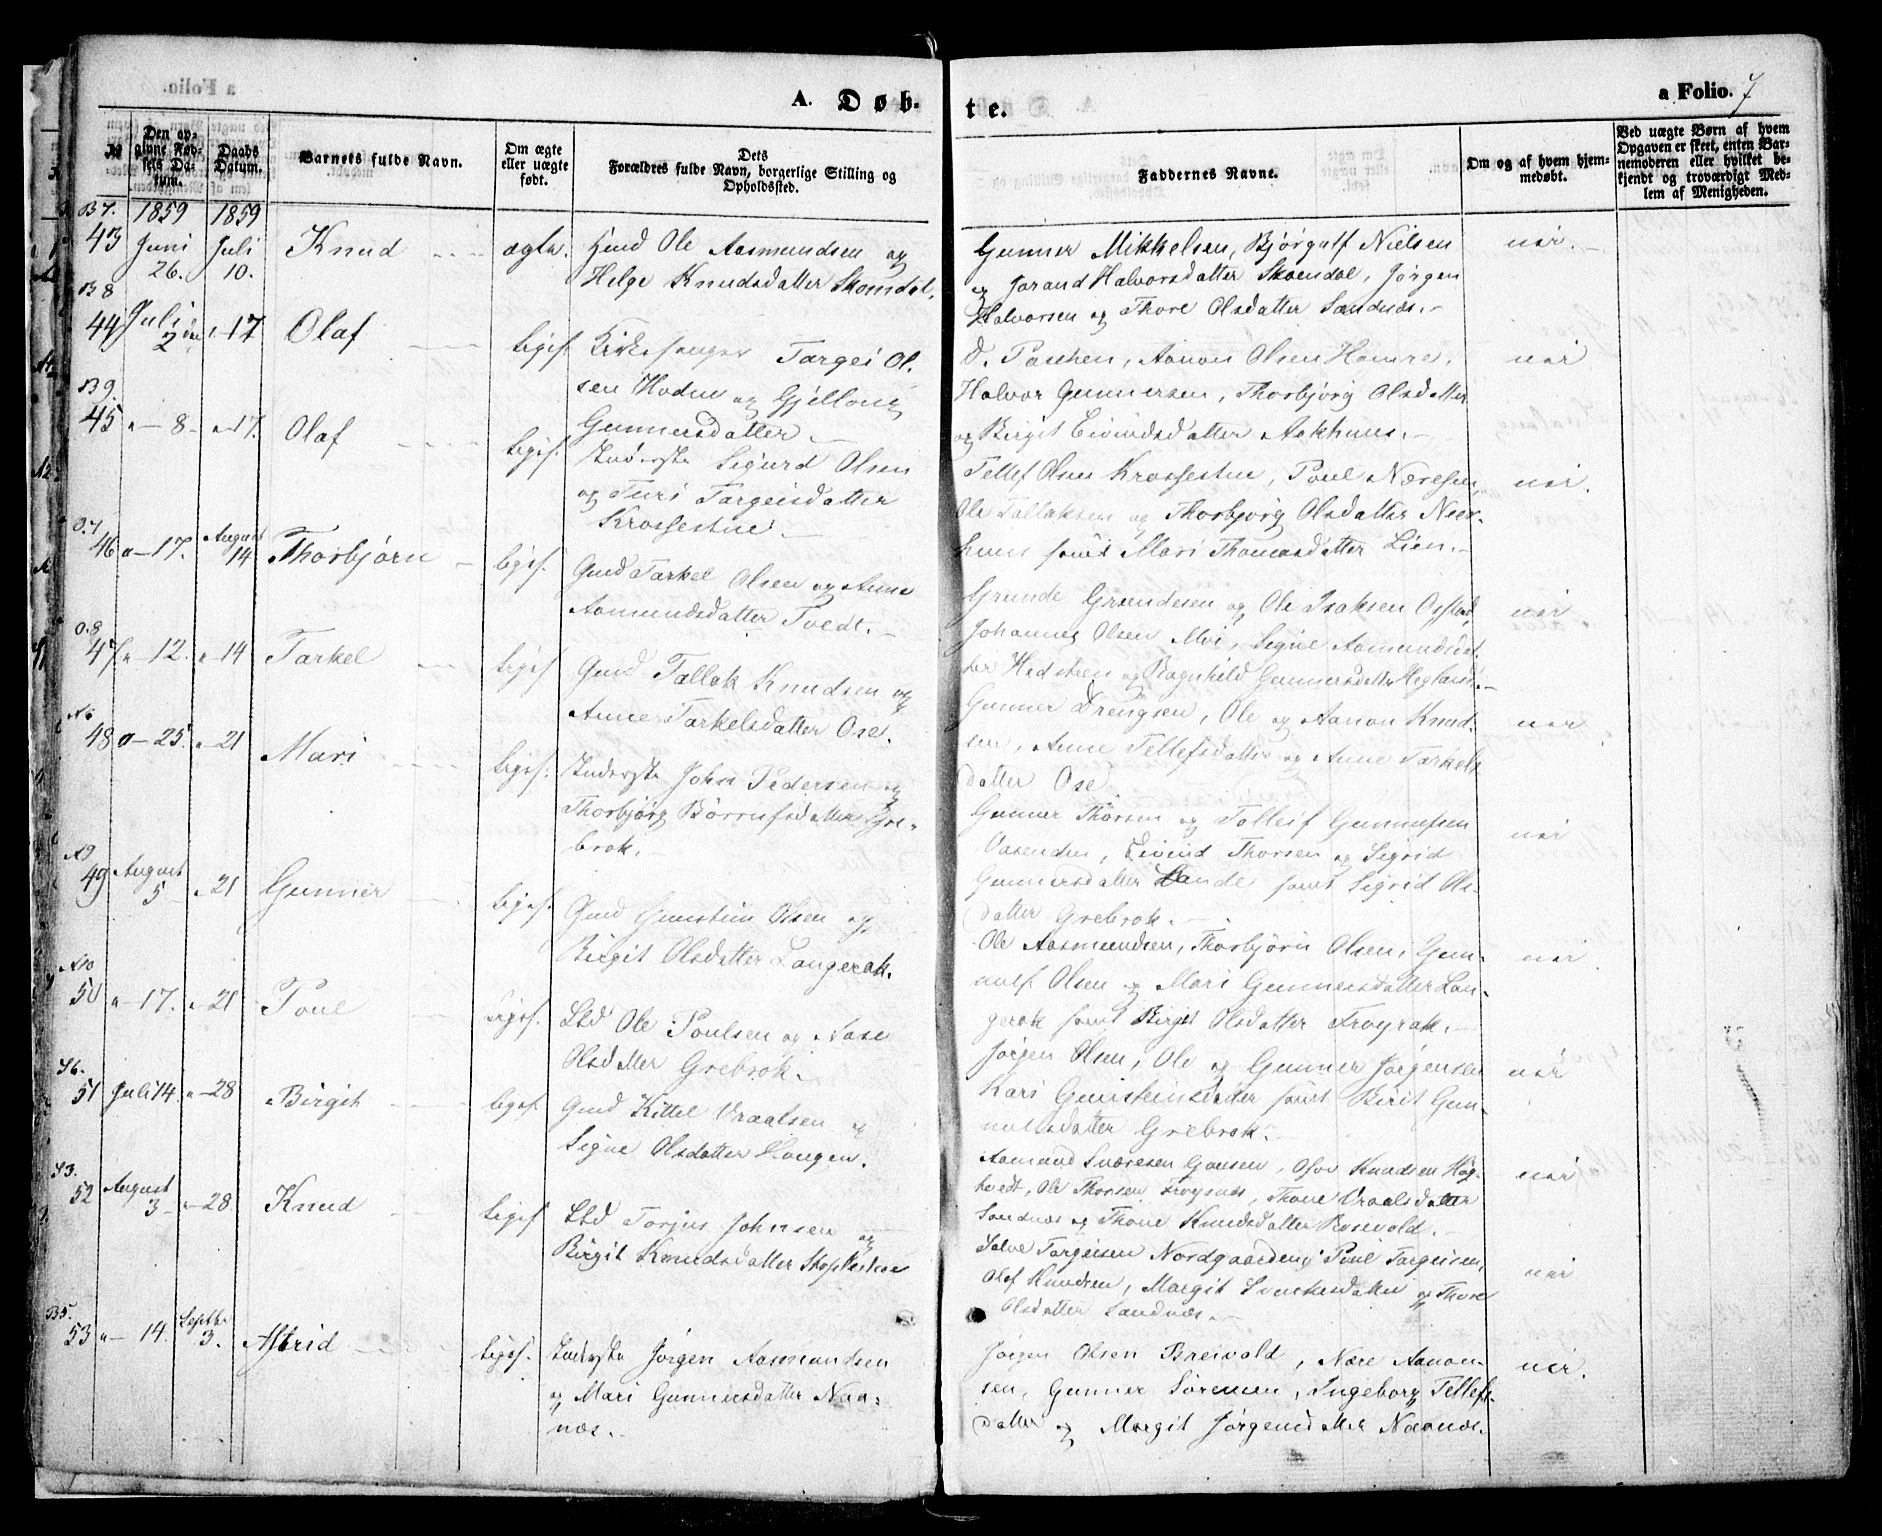 A. Døb-
te.
a Folio. 7
№
Den opgivne Fødsels Datum.
Daabs Datum.
Barnets fulde Navn.
Om ægte eller uægte født.
Dets Forældres fulde Navn, borgerlige Stilling og Opholdssted.
Faddernes Navne.
Om og af hvem hjemmedøbt.
Ved uægte Børn af hvem Opgaven er skeet, enten Barnemoderen eller hvilket bekjendt og troværdigt Medlem af Menigheden.
B 7. 1859 1859
43 Juni 26. Juli 10. Knud ægte.
Gmd Ole Aasmundsen og
Helge Knudsdatter Skomdal.
Gunner Mikkelsen, Bjørgulf Nielsen
og Jorand Halvorsdatter Skomdal, Jørgen
Halvorsen og Thore Olsdatter Sandnæs.
nei.
B 8
44 Juli 2den "-17 Olaf liges.
Kirkesanger Targei Ol-
sen Hodne og Gjellaug
Gunnersdatter.
Aanon Olsen Homre,
Halvor Gunnersen, Thorbjørg Olsdatter
og Birgit Eivindsdatter Aakhuus.
nei
B 9.
45 "-8- "-17. Olaf liges.
Inderste Sigurd Olsen
og Turi Targeisdatter
Krossestue.
Tellef Olsen Krossestue, Poul Næresen,
Ole Tallaksen og Thorbjørg Olsdatter
samt Mari Thomasdatter Lien.
nei.
O. 7
46 "-17. August 14 Thorbjørn liges.
Gmd Tarkel Olsen og Anne
Aamundsdatter Tvedt.
Grunde Grundesen og Ole Isaksen
Johannes Olsen Moi, Signe Aamundsdat-
ter og Ragnhild Gunnersdatter Hegland.
nei
O. 8
47 "-12. "-14 Tarkel liges
Gmd Tallak Knudsen og
Anne Tarkelsdatter Ose.
Gunner Drengsen, Ole og Aanon Knud-
sen, Anne Tellefsdatter og Anne Tarkels-
datter Ose
nei
A 8
48 "-25. "-21 Mari liges.
Inderste John Pedersen og
Thorbjørg Børrufsdatter Gre-
brok.
Gunner Thorsen og Tollef Gunnufsen
Oasenden, Eivind Thorsen og Sigrid
Gunnersdatter Lande samt Sigrid Ols-
datter Grebrok.
nei
A 9
49 August 5 "-21 Gunner liges.
Gmd Gunstein Olsen og
Birgit Olsdatter Langerak.
Ole Aasmundsen, Thorbjørn Olsen, Gun-
nulf Olsen og Mari Gunnersdatter Lan-
gerak samt Birgit Olsdatter Frøyrak.
nei.
A 10
50 "-17. "-21 Poul liges.
Ole Poulsen og Aase
Olsdatter Grebrok.
Jørgen Olsen, Ole og Gunner Jørgensen
Kari Gunsteinsdatter samt Birit Gun-
nulsdatter Grebrok.
nei
Y 6.
51 Juli 14. "-28 Birgit ligs.
Gmd Kittel Vraalsen og
Signe Olsdatter Haugen.
Aamund Sværesen Hougen, Osov Knudsen Høg-
tvedt, Ole Thorsen Frøysnæs, Thone Vraalsdatter
Sandnæs og Thone Knudsdatter Rosevold.
nei
Y 3.
52 August 3 "-28 Knud ligs
Torjus Johnsen og
Birgit Knudsdatter
Salve Targeisen Nordgaarden, Poul Targeisen,
Olaf Knudsen, Margit og Thore
Olsdatter Sandnæs.
nei
B 5.
53 "-14. Septbr 3. Astrid ligs.
Inderste Jørgen Aasmundsen
og Mari Gunnersdatter Naa-
næs.
Jørgen Olsen Breivold, Nære Aanon-
sen, Gunner Sørensen, Ingeborg Tellefs-
datter og Margit Jørgensdatter Naanæs.
nei.